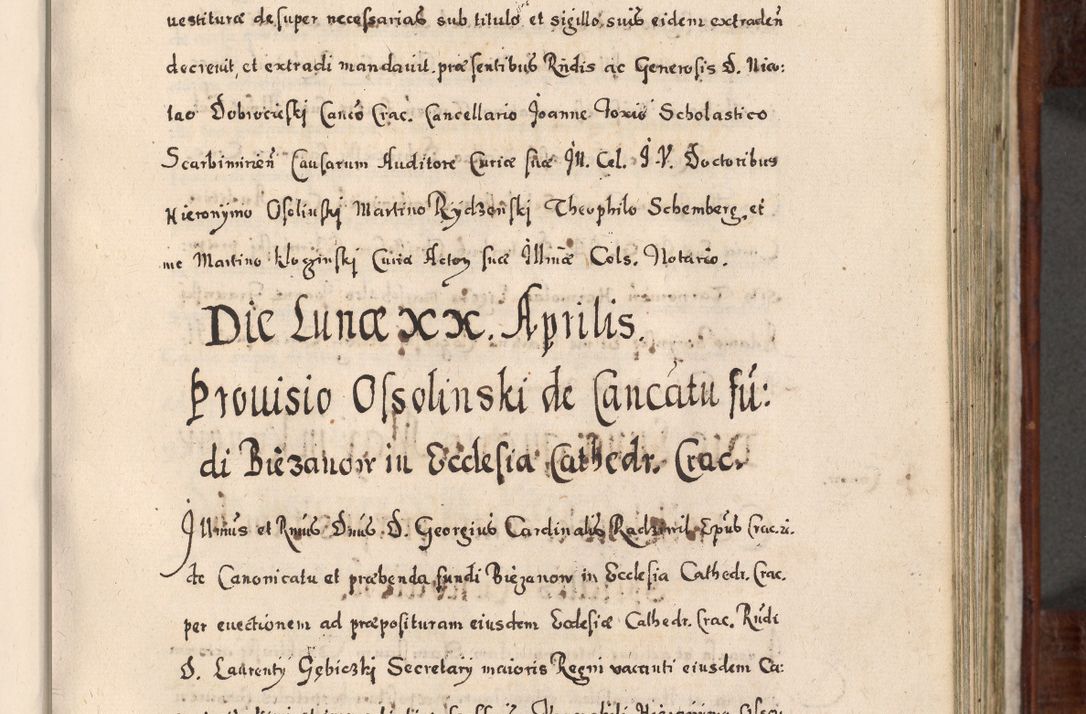 uestituræ desuper necessarias sub titulo et sigillo suis eidem extraden̄
decreuit, et extradi mandauit. præsentibus Rn̄dis ac Generosis D. Nico:
lao Dobrocieski Canco Crac. Cancellario Joanne Foxio Scholastico
Scarbimirien̄ Causarum Auditore Curiæ suæ Ill. Cel. J. V. Doctoribus
Hieronymo Ossolinski Martino Rydzenski Theophilo Schemberg, et
me Martino Kłoginski Curiæ Actor suæ Illmæ Cels. Notario.
Die Lunæ XX. Aprilis.
Prouisio Ossolinski de Cancatu fu:
di Biezanow in Ecclesia Cathedr. Crac.
Illmus et Rmus Dnus D. Georgius Cardinalis Radziwil Epus Crac. &.
de Canonicatu et præbenda fundi Biezanow in Ecclesia Cathedr. Crac.
per euectionem ad præposituram eiusdem Ecclesiæ Cathedr. Crac. Rudi
D. Laurenty Gębiczki Secretary maioris Regni vacanti eiusdem Ca: